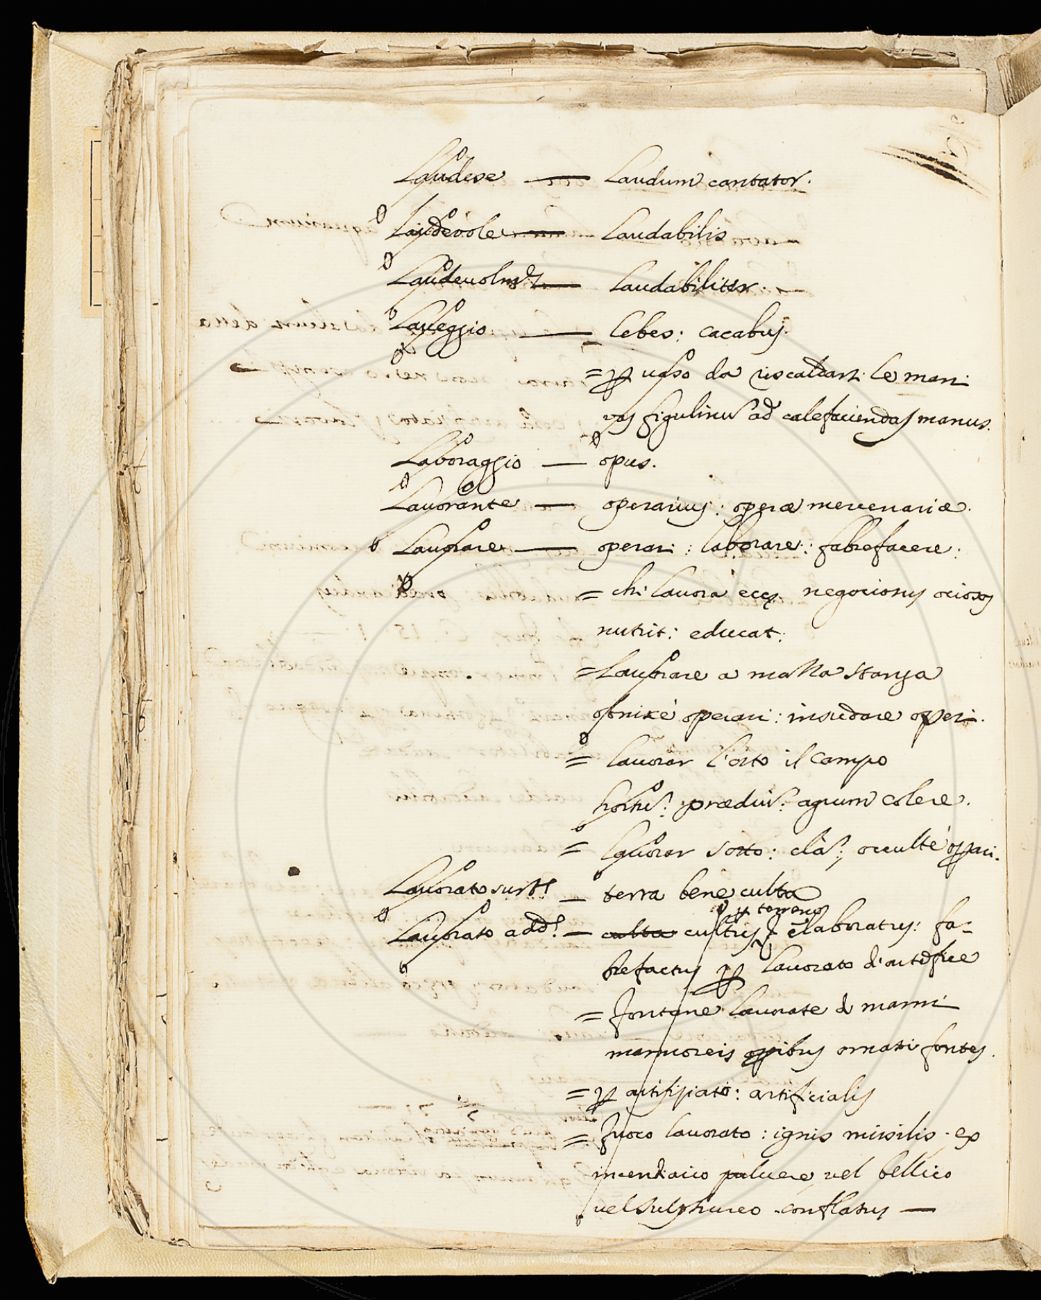 Laudese — Laudum cantator.
Laudevole — Laudabilis
Laudevolmte — Laudabiliter.
Laveggio — Lebes: cacabus.
= p vaso da riscaldarsi le mani
vas figulinus ad calefaciendas manus.
Lavoraggio — opus.
Lavorante — operarius: operæ mercenariæ.
Lavorare — operari: laborare: fabrefacere:
= chi lavora ecc. negociosus ociosos
nutrit: educat:
= Lavorare a mazza stanga
obnixè operari: insudare operi.
= lavorar l'orto il campo
hortus: prædius: agrum colere.
= lavorar sotto: clã: occultè operari.
Lavorato sustt — terra bene culta
p terreno
Lavorato add. — culta cultus elaboratus: fa-
brefactus p lavorato d'artefice
= fontane lavorate d marmi
marmoreis opibus ornati fontes.
= p artifiziato: artificialis
= fuoco lavorato: ignis missilis ex
incendiario pulvere, vel bellico
vel sulphureo conflatus —